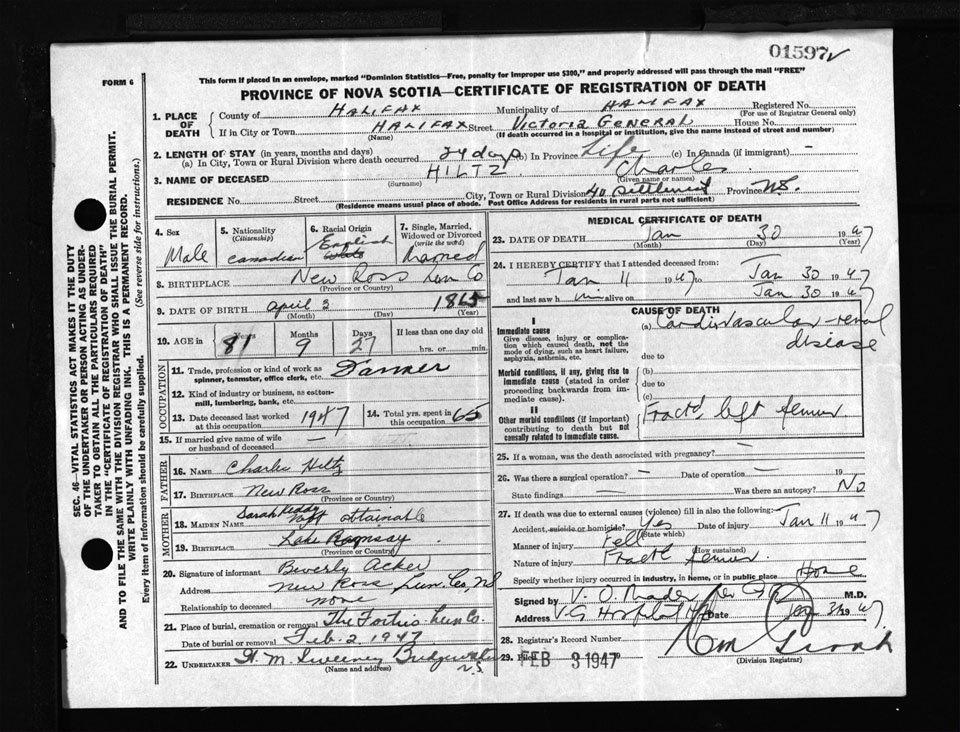 01597
FORM 6
This form if placed in an envelope, marked "Dominion Statistics—Free, penalty for improper use $300," and properly addressed will pass through the mail "FREE"
PROVINCE OF NOVA SCOTIA—CERTIFICATE OF REGISTRATION OF DEATH
1. PLACE OF DEATH
County of HALIFAX Municipality of HALIFAX Registered No.
(For use of Registrar General only)
If in City or Town HALIFAX Street Victoria GENERAL House No.
(Name) (If death occurred in a hospital or institution, give the name instead of street and number)
2. LENGTH OF STAY (in years, months and days)
(a) In City, Town or Rural Division where death occurred 24 days (b) In Province Life (c) In Canada (if immigrant) —
3. NAME OF DECEASED HILTZ Charles
(Surname) (Given name or names)
RESIDENCE No. Street City, Town or Rural Division 40 Settlement Province N.S.
(Residence means usual place of abode. Post Office Address for residents in rural parts not sufficient)
4. Sex
Male
5. Nationality
(Citizenship)
Canadian
6. Racial Origin
English
7. Single, Married, Widowed or Divorced
(write the word)
8. BIRTHPLACE New Ross Lun Co
(Province or Country)
9. DATE OF BIRTH April 3 1865
(Month) (Day) (Year)
10. AGE in
Years Months Days If less than one day old
81 9 27 hrs. or min.
OCCUPATION
11. Trade, profession or kind of work as spinner, teamster, office clerk, etc. Farmer
12. Kind of industry or business, as cotton-mill, lumbering, bank, etc.
13. Date deceased last worked at this occupation 1947
14. Total yrs. spent in this occupation 65
15. If married give name of wife or husband of deceased —
FATHER
16. NAME Charlie Hiltz
17. BIRTHPLACE New Ross
(Province or Country)
MOTHER
18. MAIDEN NAME Sarah Keddy
not attainable
19. BIRTHPLACE Lake Ramsay
(Province or Country)
20. Signature of informant Beverly Acker
Address New Ross Lun. Co, NS
Relationship to deceased none
21. Place of burial, cremation or removal The Forties Lun Co.
Date of burial or removal Feb. 2 1947
22. UNDERTAKER M Sweeney Bridgewater
N.S.
(Name and address)
MEDICAL CERTIFICATE OF DEATH
23. DATE OF DEATH Jan 30 1947
(Month) (Day) (Year)
24. I HEREBY CERTIFY that I attended deceased from:
Jan 11 1947 to Jan 30 1947
and last saw him alive on Jan 30 1947
CAUSE OF DEATH
I
Immediate cause
Give disease, injury or complication which caused death, not the mode of dying, such as heart failure, asphyxia, asthenia, etc.
(a) Cardiovascular-renal
disease
due to
Morbid conditions, if any, giving rise to immediate cause (stated in order proceeding backwards from immediate cause).
(b)
due to
(c)
II
Other morbid conditions (if important) contributing to death but not causally related to immediate cause.
Fractd left femur
25. If a woman, was the death associated with pregnancy? —
26. Was there a surgical operation? — Date of operation — 19
State findings — Was there an autopsy? No
27. If death was due to external causes (violence) fill in also the following:
Accident, suicide or homicide? Yes Date of injury Jan 11 1947
(State which)
Manner of injury Fell
(How sustained)
Nature of injury Fractd femur
Specify whether injury occurred in industry, in home, or in public place Home
Signed by V. O. Mader M.D.
Address V.G Hospital Date Jan 31 1947
28. Registrar's Record Number
29. Filed FEB 3 1947
(Division Registrar)
SEC. 46—VITAL STATISTICS ACT MAKES IT THE DUTY
OF THE UNDERTAKER OR PERSON ACTING AS UNDER-
TAKER TO OBTAIN ALL THE PARTICULARS REQUIRED
IN THE "CERTIFICATE OF REGISTRATION OF DEATH"
AND TO FILE THE SAME WITH THE DIVISION REGISTRAR WHO SHALL ISSUE THE BURIAL PERMIT.
WRITE PLAINLY WITH UNFADING INK. THIS IS A PERMANENT RECORD.
Every item of information should be carefully supplied. (See reverse side for instructions.)